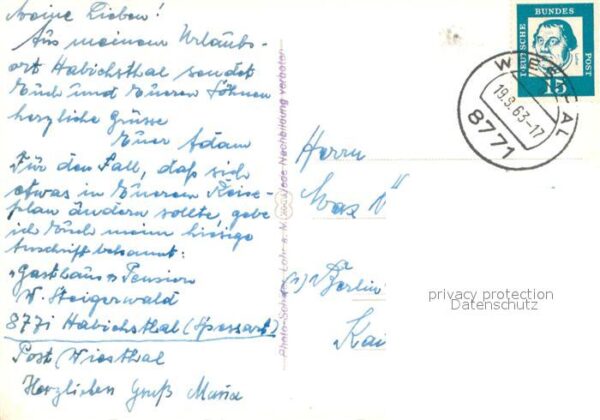 Meine Lieben!
Aus meinem Urlaubs-
ort Habichsthal sendet
Euch und Eueren Söhnen
herzliche Grüsse
Euer Adam
Für den Fall, daß sich
etwas in Eueren Reise-
plan ändern sollte, gebe
ich Euch meine hiesige
Anschrift bekannt:
"Gasthaus u Pension
V. Steigerwald
8771 Habichsthal (Spessart)
Post Wiesthal
Herzlichen Gruß Maria
Jede Nachbildung verboten
Photo- Lohr a. M.
DEUTSCHE BUNDES POST
Luther
15
WIESTHAL
19.9.63-17
8771
Herrn
Max
Berlin
Kai
privacy protection
Datenschutz